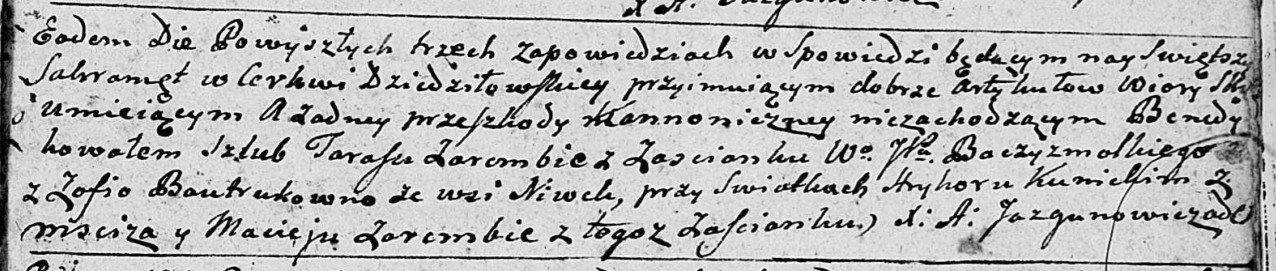 X: A: Jazgunowicz
Eadem Die Powyszłych trzech zapowiedziach w Spowiedzi będącym nay Swiętszy
Sakrament w Cerkwi Dziedziłowskiey przyimuiącym dobrze Artykułow Wiory
Umieiącym A Zadney przeszkody Kannoniczney niezachodzącym Benedy
kowałem Szlub Tarasu Zarembie z Zascianku Wo. Baczyzmalkiego
z Zofio Bautrukowno ze wsi Niwek, przy Swiatkach Hryhoru Kunickim z
Msciza y Macieju Zarembie z tegoz Zascianku.) X: A: Jazgunowicz